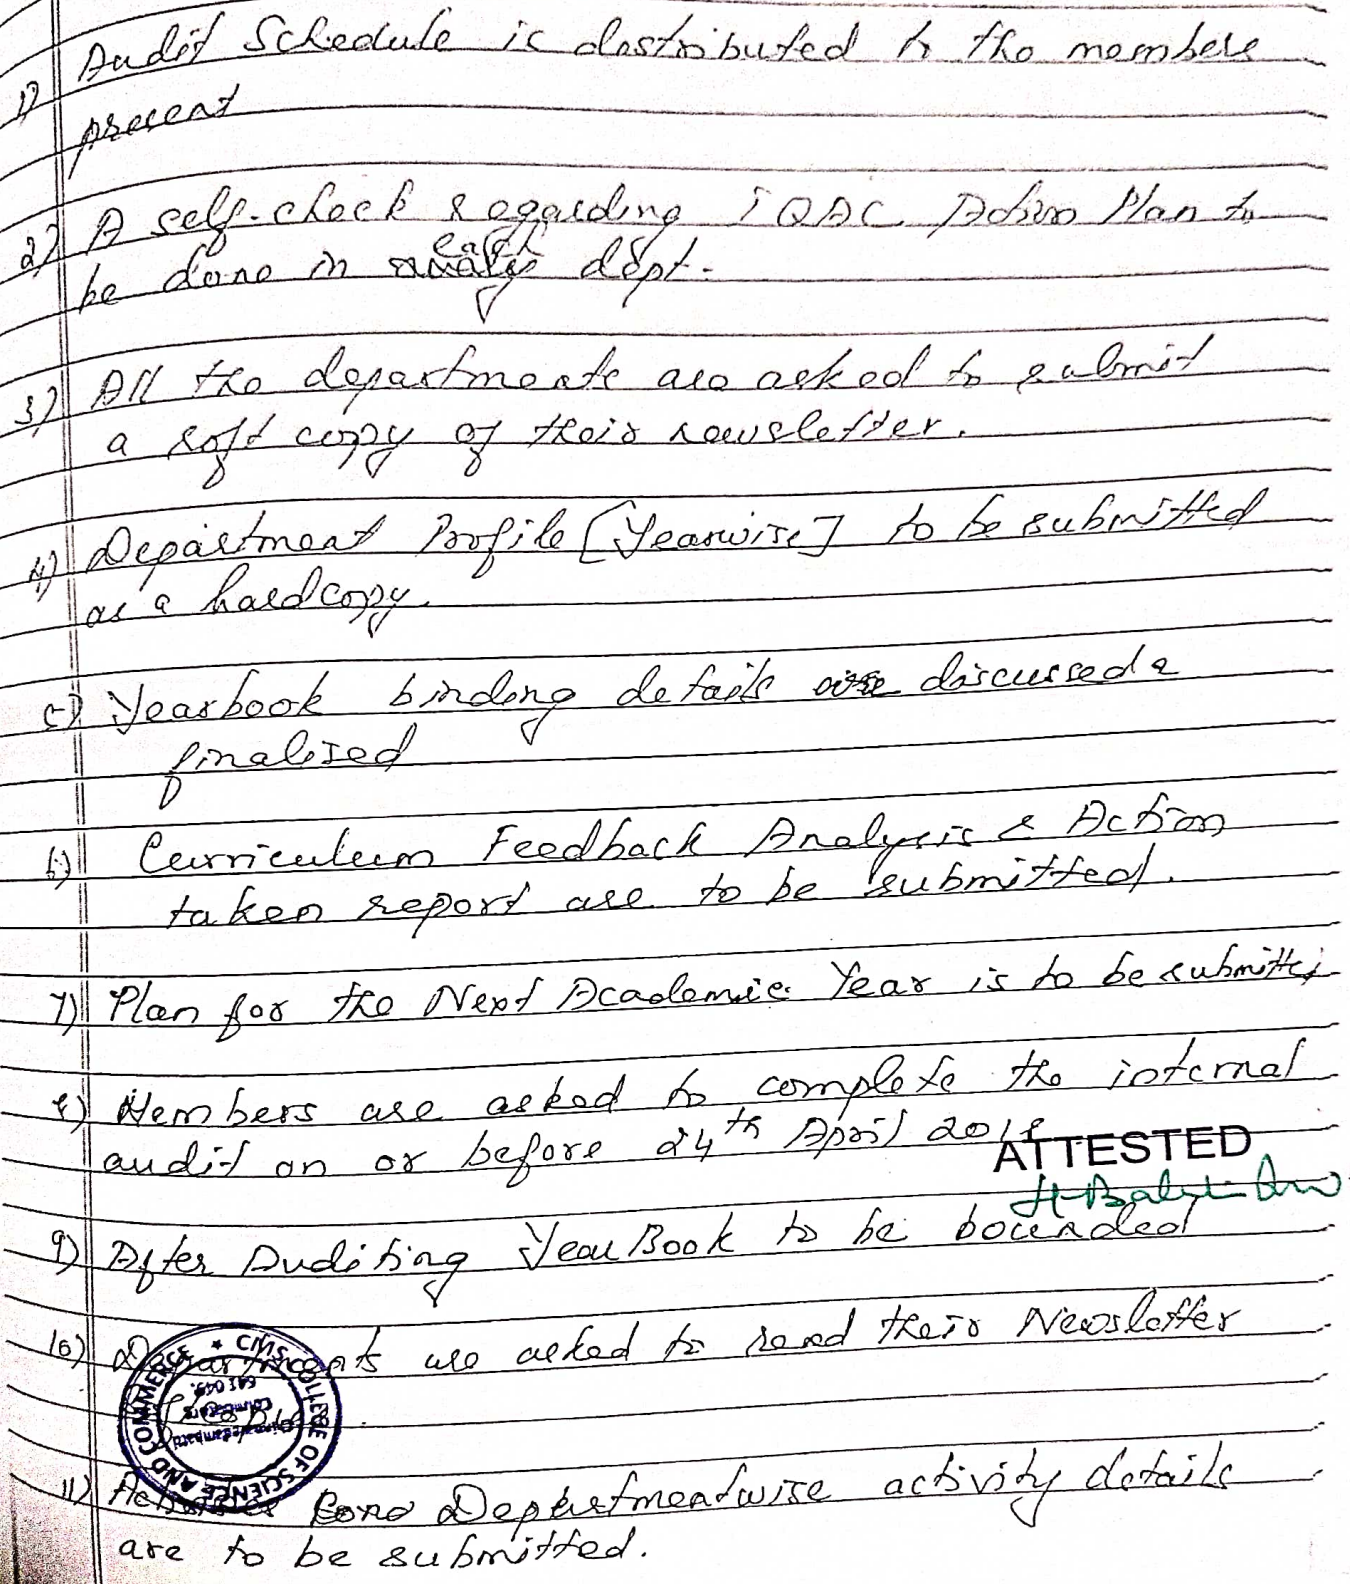 1) Audit Schedule is distributed to the members
present
2) A self-check regarding IQAC Action Plan to
be done in each dept.
3) All the departments are asked to submit
a soft copy of their newsletter.
4) Department Profile [Yearwise] to be submitted
as a hardcopy.
5) Yearbook binding details are discussed &
finalised
6) Curriculum Feedback Analysis & Action
taken report are to be submitted.
7) Plan for the Next Academic Year is to be submitted
8) Members are asked to complete the internal
audit on or before 24th April 2018
ATTESTED
9) After Auditing Year Book to be bounded
10) Departments are asked to send their Newsletter
CMS COLLEGE OF SCIENCE AND COMMERCE
Chinnavedampatti
Coimbatore
641 049.
11) Departmentwise activity details
are to be submitted.